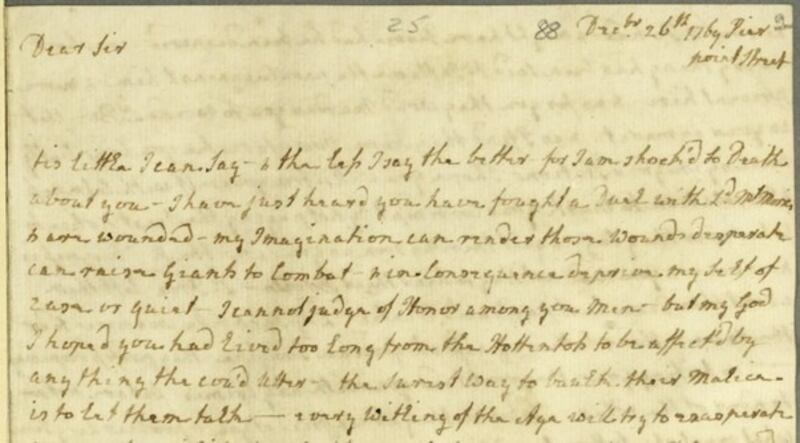 25 88 Decbr 26th 1769 Pier
point Street
Dear Sir
tis little I can say - & the less I say the better for I am shock'd to Death
about you - I have just heard you have fought a Duel with Ld Mt Morris
& are wounded - my Imagination can render those wounds desperate
can raise Giants to Combat - & in Consequence deprive my self of
ease or quiet - I cannot judge of Honor among you Men - but my God
I hoped you had lived too long from the Hottentots to be affect'd by
any thing the cou'd utter - the surest way to baulk their Malice -
is to let them talk - every Witling of the Age will try to exasperate